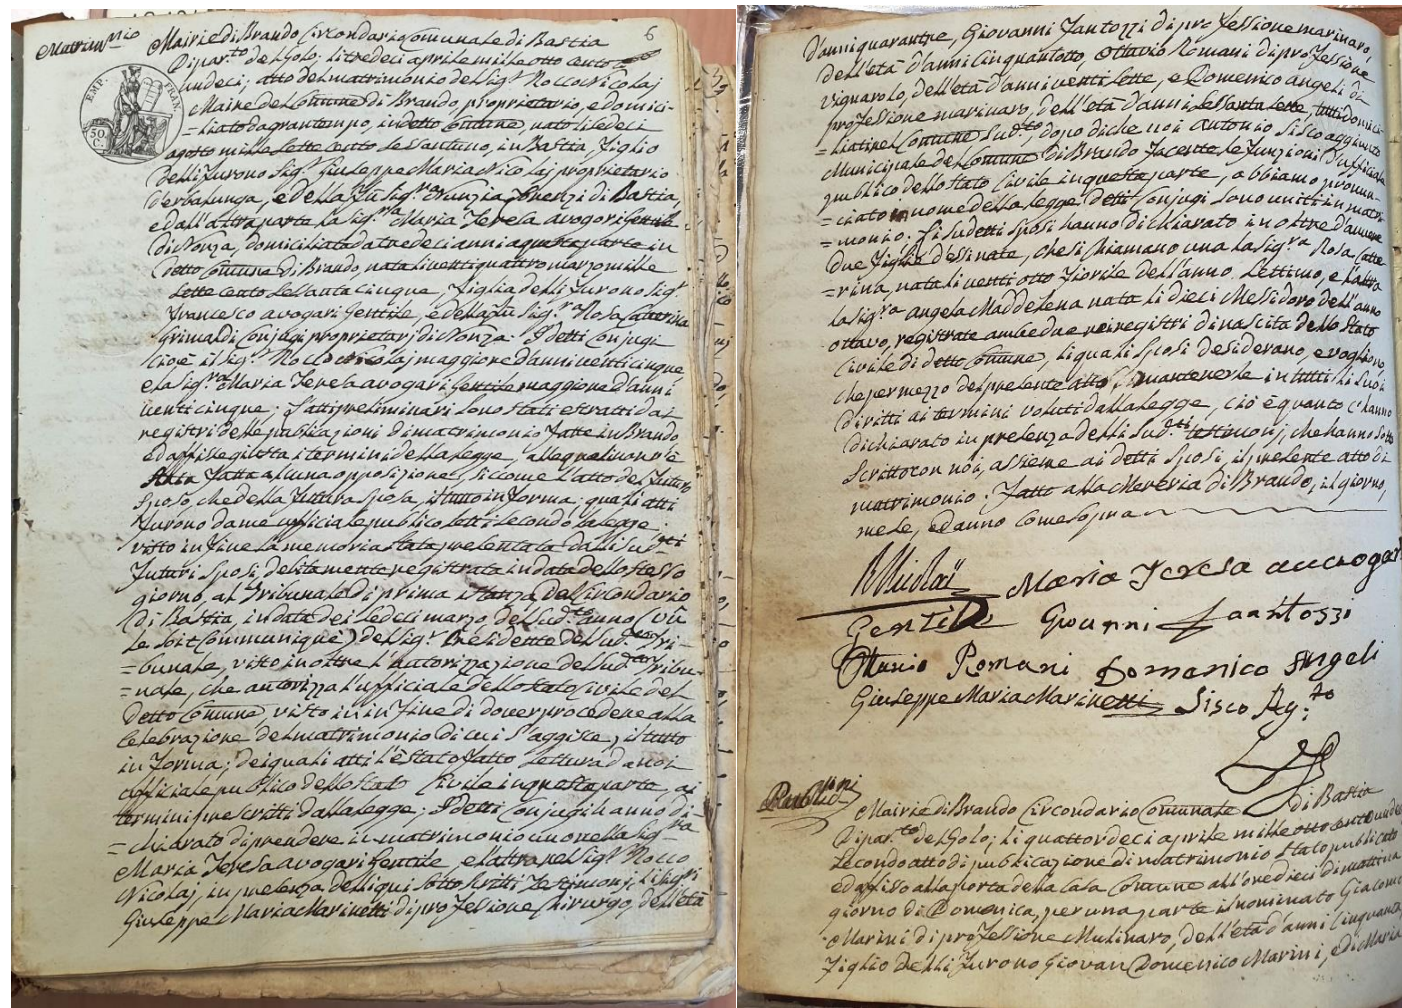 Matrimonio
6
Mairie di Brando Circondario Comunale di Bastia
Dipar.to del Golo; li tredeci aprile mille otto cento
undeci; atto del matrimonio del Sig.r Rocco Nicolaj
Maire del Comune di Brando, proprietario, e domici-
=liato da gran tempo, in detto Comune, nato li sedeci
agosto mille sette cento sessantuno, in Bastia, figlio
delli furono Sig.r Giuseppe Maria Nicolaj proprietario
d'erbalunga, e della fu Sig.ra Nunzia forenzi di Bastia,
e dall'altra parte la Sig.ra Maria Teresa avogari Gentile
di Nonza, domiciliata da tredeci anni a questa parte in
detto Comune di Brando, nata li venti quattro marzo mille
sette cento sessanta cinque, figlia delli furono Sig.r
francesco avogari Gentile, e della fu Sig.ra Rosa Caterina
Grimaldi Conjugi proprietarj di Nonza. I detti Conjugi
cioè il Sig.r Rocco Nicolaj maggiore d'anni venti cinque
e la Sig.ra Maria Teresa avogari Gentile maggiore d'anni
venti cinque; Gl'atti preliminari sono stati estratti dai
registri delle publicazioni di matrimonio fatte in Brando
ed affisse giusta i termini della legge, alle quali non v'è
stata fatta alcuna opposizione, siccome l'atto del futuro
sposo, che della futura sposa, il tutto in forma; quali atti
furono da me ufficiale publico letti secondo la legge;
visto in fine la memoria stata presentata dalli sud.ti
futuri sposi debitamente registrata in data dello stesso
giorno, al Tribunale di prima istanza del Circondario
di Bastia, in data dei sedeci marzo del sud.to anno (vû
le soit Communiqué) del Sig.r Presidente del sud.to Tri-
=bunale, visto in oltre l'autorizazione del sud.to Tribu-
=nale, che autorizza l'ufficiale dello stato Civile del
detto Comune, visto in fine di dover procedere alla
Celebrazione del matrimonio di cui s'aggisce, il tutto
in forma; dei quali atti l'è stato fatto lettura da noi
officiale publico dello stato Civile in questa parte, ai
termini prescritti dalla legge; I detti Conjugi hanno di-
=chiarato di prendere in matrimonio uno nella Sig.ra
Maria Teresa avogari Gentile e l'altra nel Sig.r Rocco
Nicolaj, in presenza delli qui sotto scritti Testimonj, li Sig.ri
Giuseppe Maria Marinetti di professione Chirurgo, dell'età
d'anni quarantre, Giovanni Fantozzi di professione marinaro,
dell'età d'anni cinquantotto, Ottavio Romani di professione
vignarolo, dell'età d'anni venti sette, e Domenico Angeli di
professione marinaro, dell'età d'anni sessanta sette, tutti domici-
=liati nel Comune sud.to, dopo di che noi Antonio Sisco aggiunto
Municipale del Comune di Brando facente le funzioni d'ufficiale
publico dello stato Civile in questa parte, abbiamo pronun-
=ciato in nome della legge detti Conjugi sono uniti in matri-
=monio; Li sudetti sposi hanno dichiarato in oltre d'avere
due figlie dessinate, che si chiamano una la Sig.ra Rosa Catte
=rina, nata li venti otto fiorile dell'anno settimo, e l'altra
la Sig.ra Angela Maddelena nata li dieci Messidoro dell'anno
ottavo, registrate ambedue nei registri di nascita dello stato
Civile di detto Comune, li quali sposi desiderano, e vogliono,
che per mezzo del presente atto si mantenerle in tutti li suoi
diritti ai termini voluti dalla legge, ciò è quanto c'hanno
dichiarato in presenza delli sud.ti testimonj, che hanno sotto
scritto con noi, assieme ai detti sposi, il presente atto di
matrimonio. Fatto alla Maireria di Brando, il giorno,
mese, ed anno come sopra
RNicolaÿ Maria Teresa auuogari
Gentile Giouanni fantozzi
Ottauio Romani Domenico Angeli
Giuseppe Maria Marinetti Sisco Ag.to
Publicazioni
Mairie di Brando Circondario Comunale di Bastia
Dipar.to del Golo; li quattordeci aprile mille otto cento undeci
secondo atto di publicazione di matrimonio stato publicato
ed affisso alla porta della Casa Comune all'ore dieci di mattina
giorno di Domenica, per una parte il nominato Giacomo
Marini di professione Mulinaro, dell'età d'anni cinquanta
figlio delli furono Giovan Domenico Marini, e di Maria
EMP.
50
C.